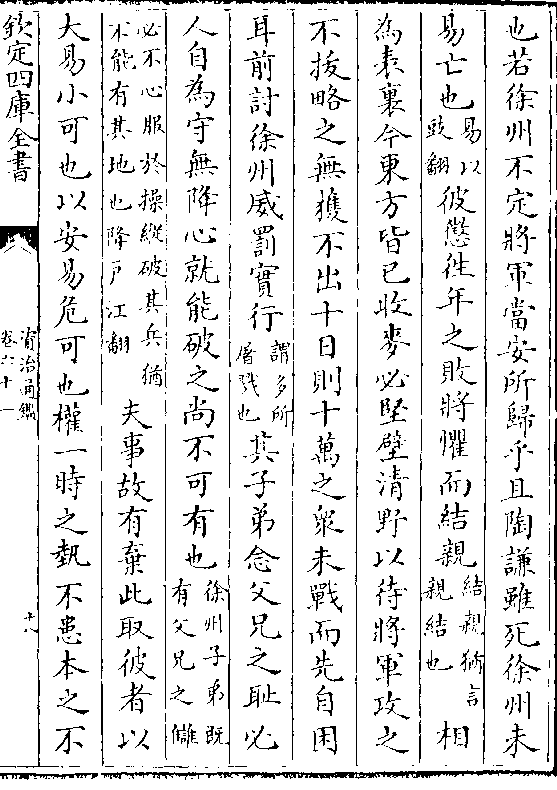 也若徐州不定將軍當安所歸乎且陶謙雖死徐州未
易亡也易以豉翻彼懲往年之敗將懼而結親結親猶言親結也相
為表裏今東方皆已收麥必堅壁清野以待將軍攻之
不拔略之無獲不出十日則十萬之衆未戰而先自困
耳前討徐州威罰實行謂多所屠戮也其子弟念父兄之恥必
人自為守無降心就能破之尚不可有也徐州子弟既有父兄之讎
必不心服於操縱破其兵猶不能有其地也降戶江翻夫事故有棄此取彼者以
大易小可也以安易危可也權一時之埶不患本之不
欽定四庫全書
資治通鑑
卷六十一
十八